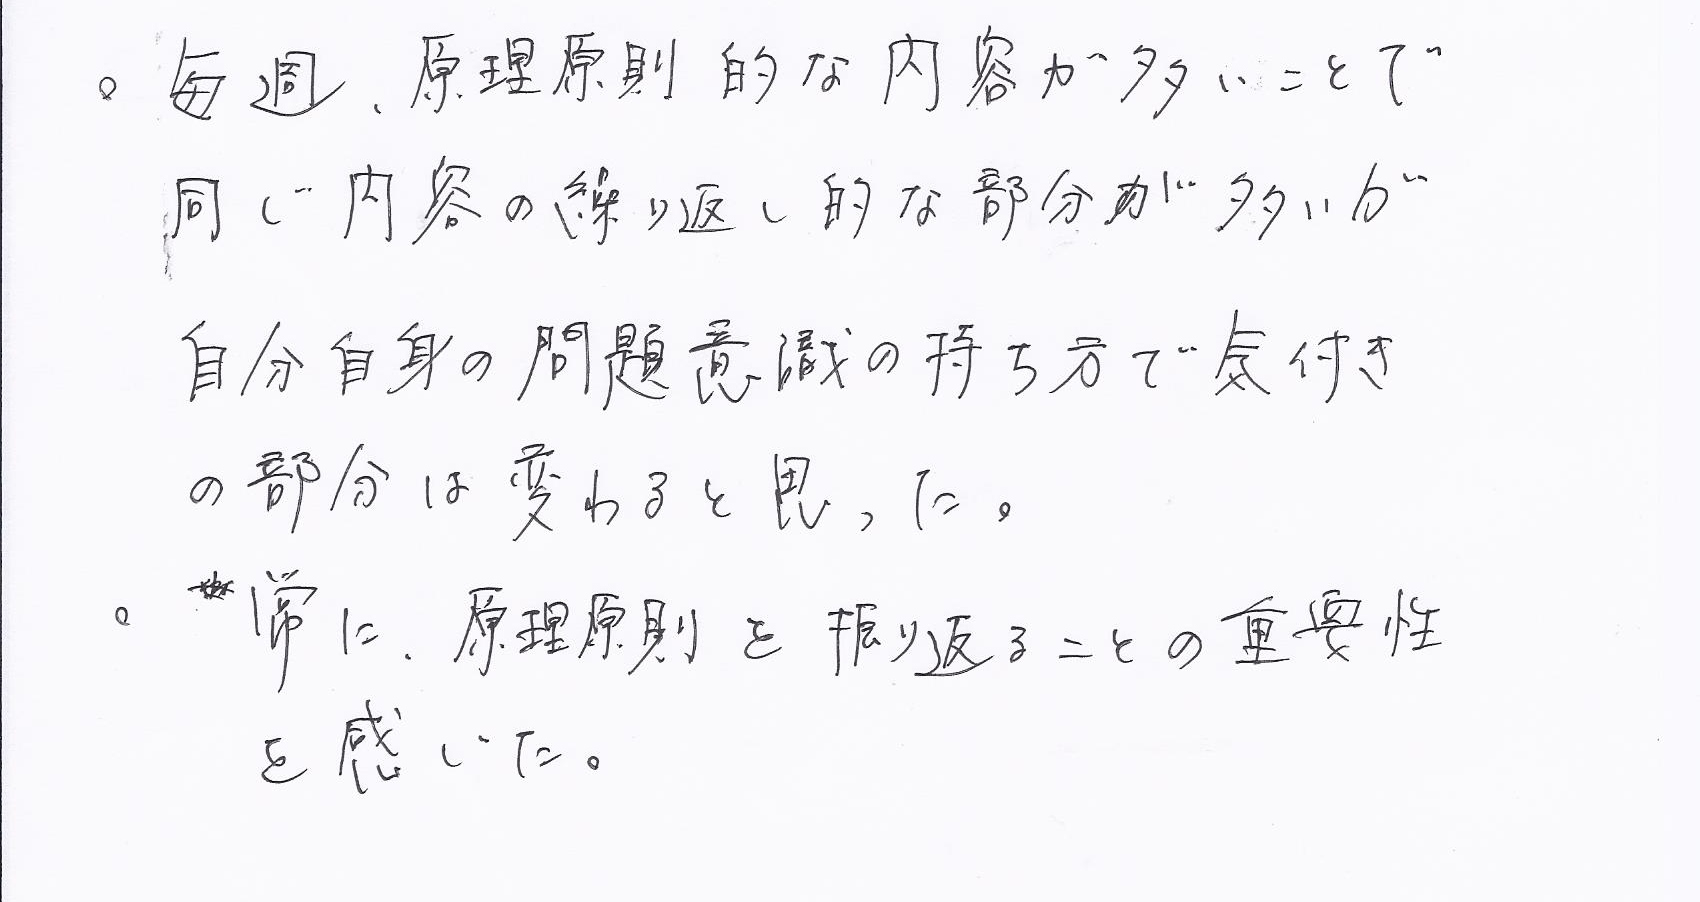 。毎週、原理原則的な内容が多いことで
同じ内容の繰り返し的な部分が多いが
自分自身の問題意識の持ち方で気付き
の部分は変わると思った。
。常に、原理原則を振り返ることの重要性
を感じた。